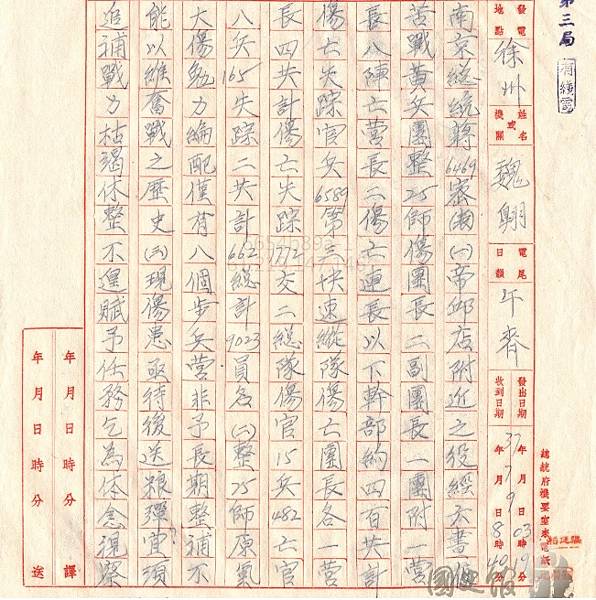 第三局
有線電
發電地點
徐州
姓名或機關
魏翱
電尾日韻
午齊
發出日期
37年7月9日03時19分
收到日期
年月日8時40分
南京總統蔣6469密(一)帝邱店附近之役經六晝夜
苦戰黃兵團整25師傷團長二副團長一團附一營
長八陣亡營長二傷亡連長以下幹部約四百共計
傷亡失踪官兵6589第三快速縱隊傷亡團長各一營
長四共計傷亡失踪1772交二總隊傷官15兵482亡官
八兵165失踪二共計662總計9023員名(二)整25師原氣
大傷勉力編配僅有八個步兵營非予長期整補不
能以維奮戰之歷史(三)現傷患亟待後送粮彈宜須
追補戰力枯竭休整不遑賦予任務乞為体念視察
年月日時分譯
年月日時分送
總統府機要室來電紙